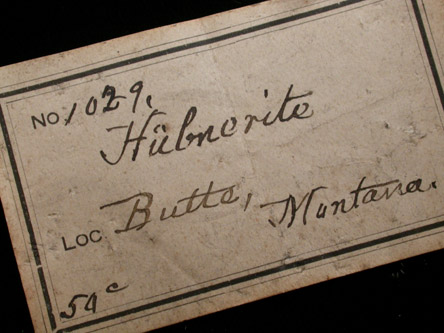 NO. 1029.
Hübnerite
LOC Butte,
Montana.
50c